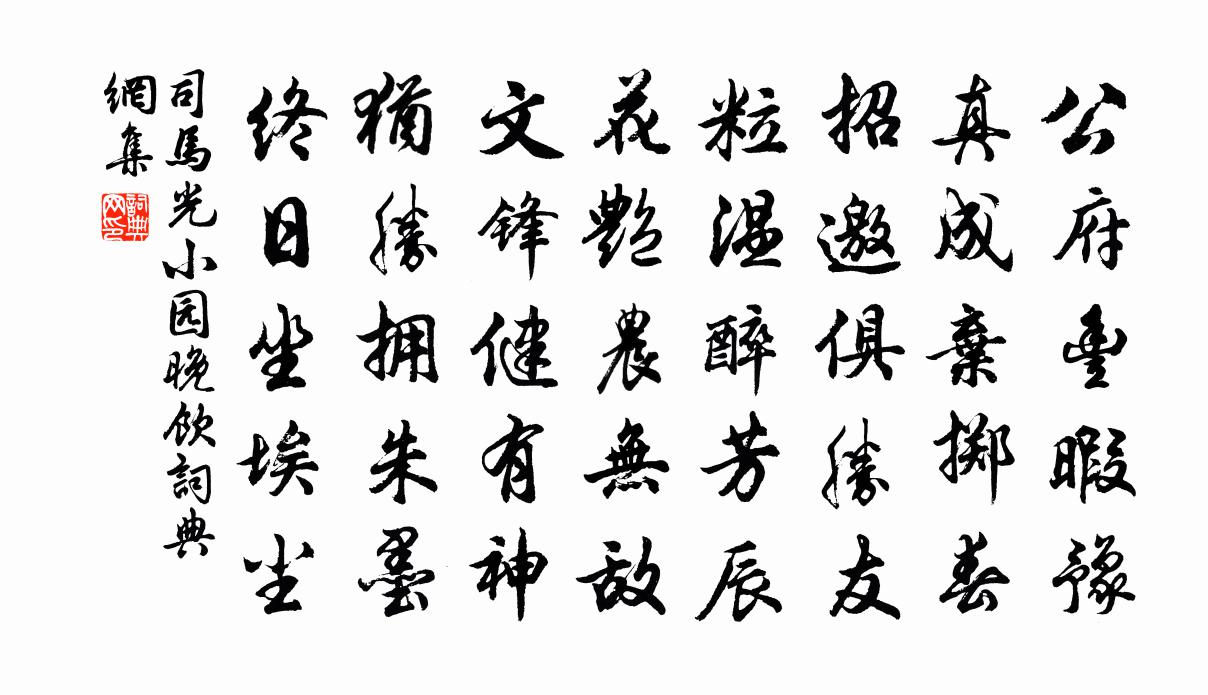 公府豐暇豫
真成棄掷春
招邀俱勝友
粒温醉芳辰
花艷農無敌
文锋健有神
猶勝拥朱墨
終日坐埃尘
司馬光小园晚飲詞典
網集
詞典
网印